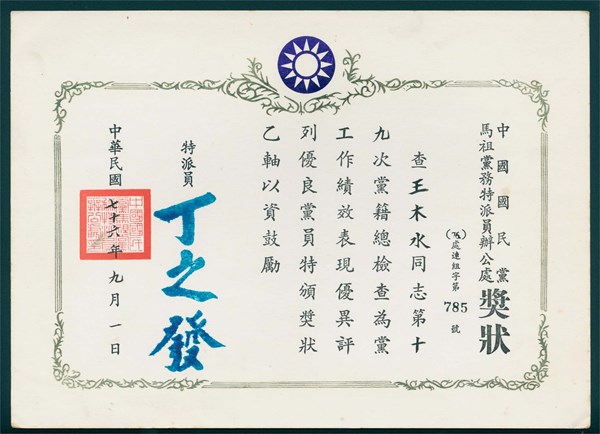 中國國民黨
馬祖黨務特派員辦公處
獎狀
(76)處連組字第785號
查王木水同志第十
九次黨籍總檢查為黨
工作績效表現優異評
列優良黨員特頒獎狀
乙軸以資鼓勵
特派員
丁之發
中華民國七十六年九月一日